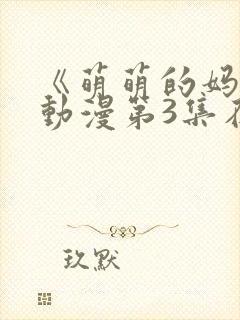 《萌萌的妈
動漫第3集
玖默